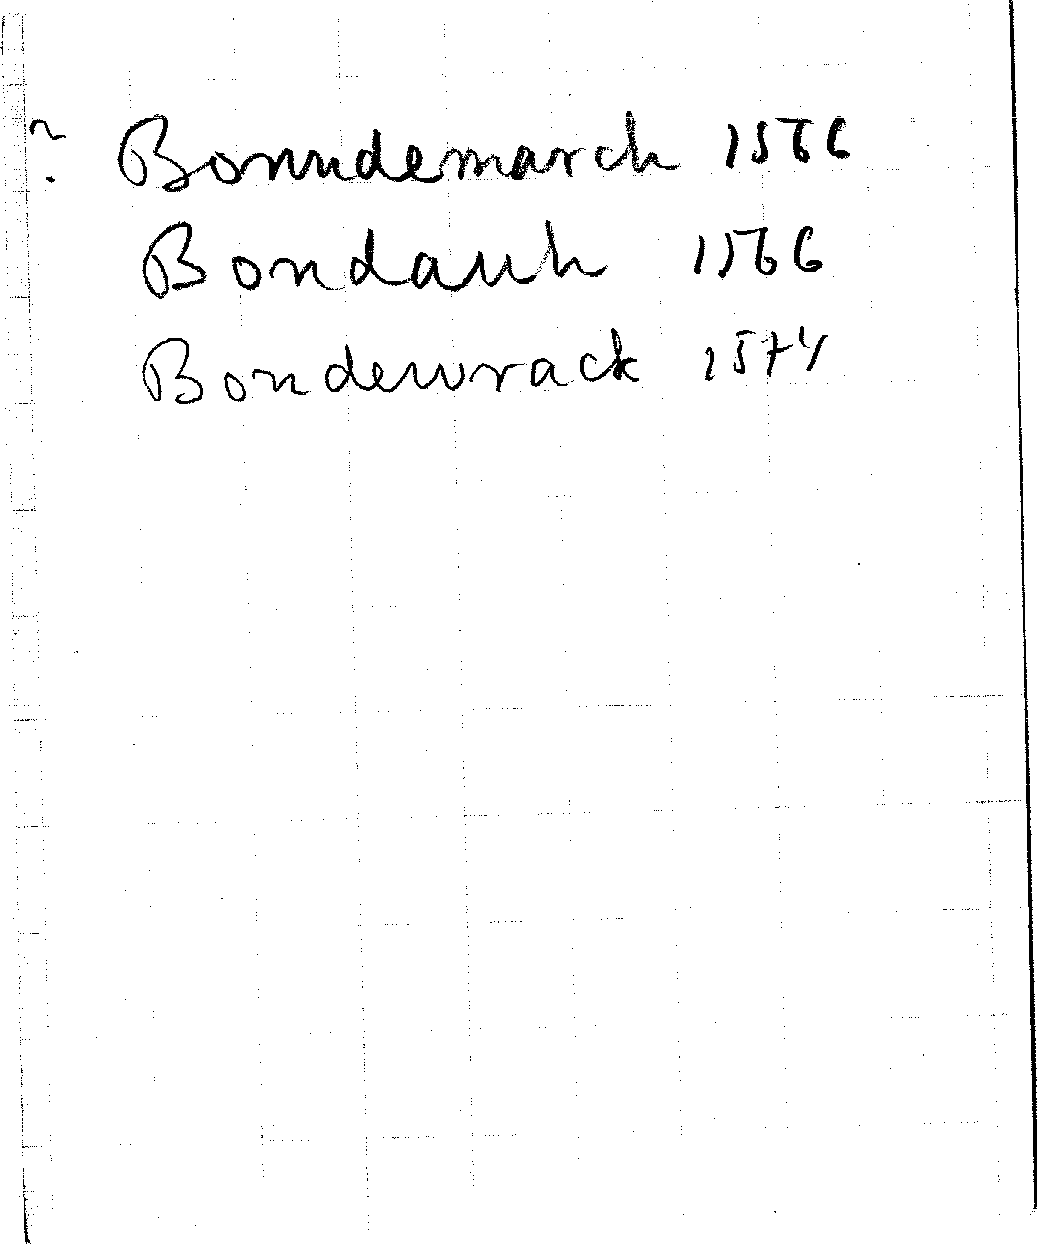 ? Bonndemarch 1566
Bondauh 1566
Bondewrack 1574